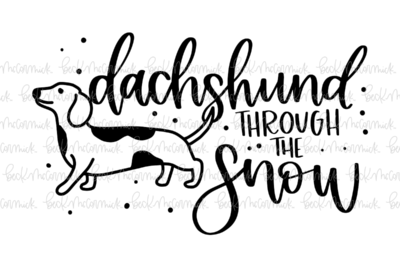 dachshund
THROUGH
THE
Snow